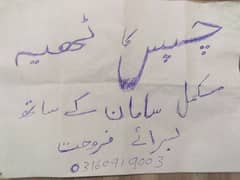 چپس کا ٹھیہ
مکمل سامان کے ساتھ
برائے فروخت
03160919003